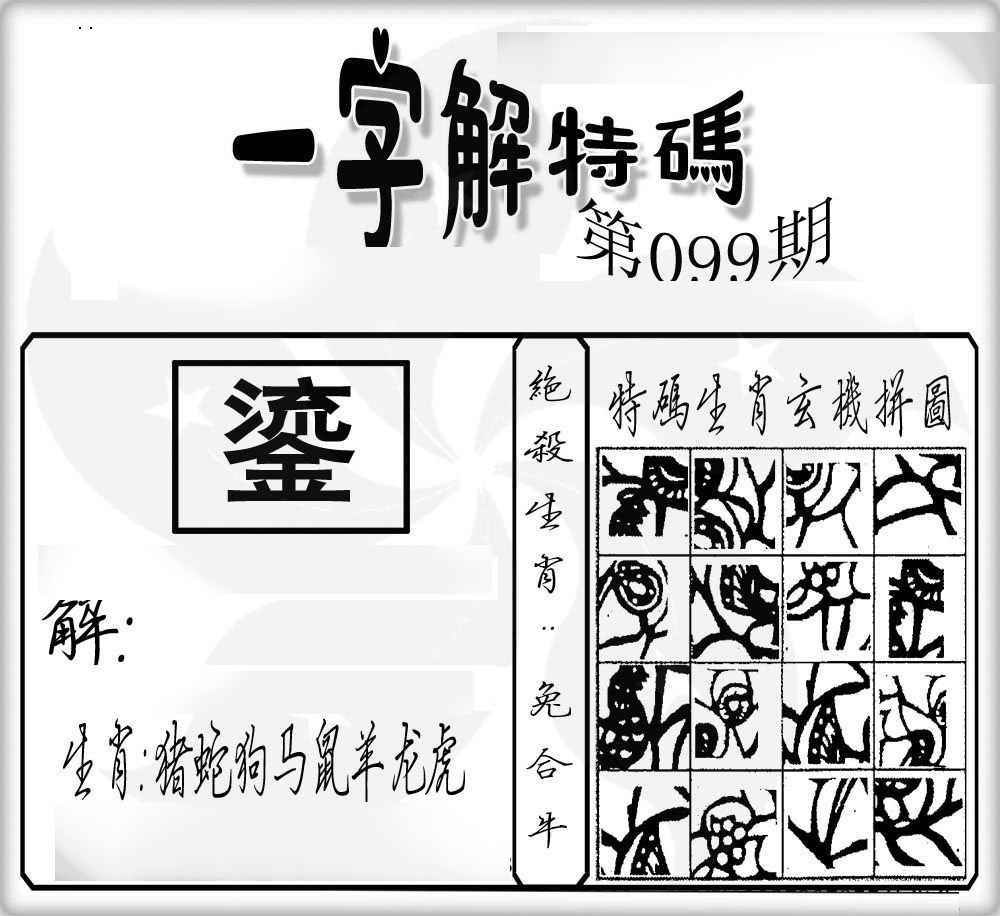 一字解特碼
第099期
鎏
解:
生肖:猪蛇狗马鼠羊龙虎
絶殺生肖:兔合牛
特碼生肖玄機拼圖